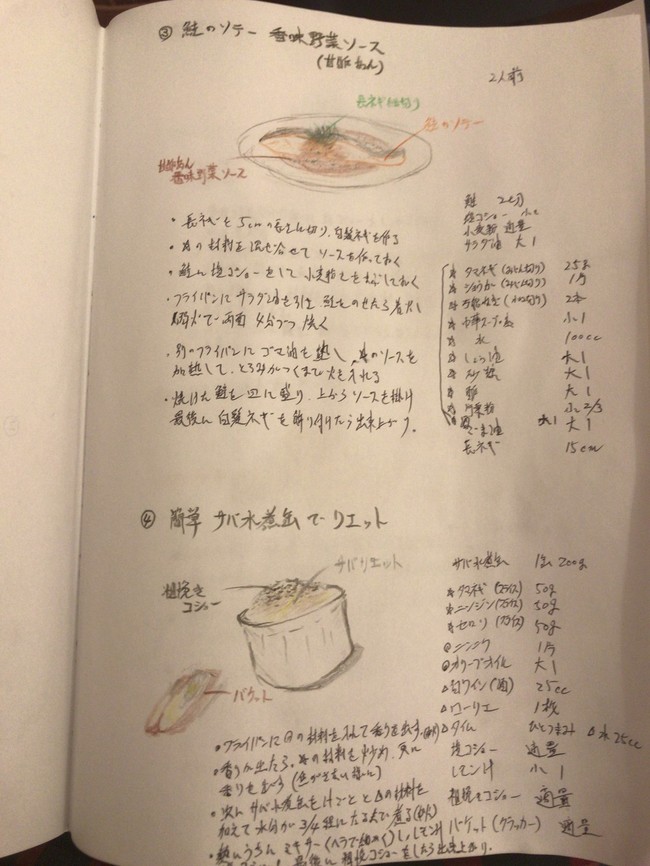 ③ 鮭のソテー 香味野菜ソース
(甘酢あん)
2人前
長ネギ(細切り)
鮭のソテー
甘酢あん
香味野菜ソース
・長ネギを5cmの長さに切り、白髪ネギを作る
・*の材料を混ぜ合せてソースを作っておく
・鮭に塩コショーをして小麦粉をまぶしておく
・フライパンにサラダ油を引き 鮭をのせたら着火し
弱火で両面 4分づつ焼く
・別のフライパンにゴマ油を熱し、*のソースを
加熱して、とろみがつくまで火を入れる
・焼けた鮭を皿に盛り、上からソースを掛け
最後に白髪ネギを飾り付けたら出来上り。
鮭 2切
塩コショー 少々
小麦粉 適量
サラダ油 大1
* タマネギ(みじん切り) 25g
* ショウガ(みじん切り) 1片
* 万能ネギ(小口切り) 2本
* 中華スープの素 小1
* 水 100cc
* しょう油 大1
* 砂糖 大1
* 酢 大1
* 片栗粉 小2/3
ごま油 大1
長ネギ 15cm
④ 簡単 サバ水煮缶でリエット
サバリエット
粗挽き
コショー
バケット
サバ水煮缶 1缶 200g
* タマネギ(スライス) 50g
* ニンジン(スライス) 50g
* セロリ(スライス) 50g
◎ニンニク 1片
◎オリーブオイル 大1
△白ワイン(酒) 25cc
△ローリエ 1枚
△タイム ひとつまみ △水25cc
塩コショー 適量
レモン汁 小1
粗挽きコショー 適量
バケット(クラッカー) 適量
・フライパンに◎の材料を入れて香りを出す。(弱火)
・香りが出たら、*の材料を炒め、更に
香りを出す
・次に サバ水煮缶を汁ごとと△の材料を
加えて水分が3/4程になるまで煮る
・熱いうちにミキサー(ヘラで細かく)し、レモン汁
最後に 粗挽コショーをしたら出来上り。